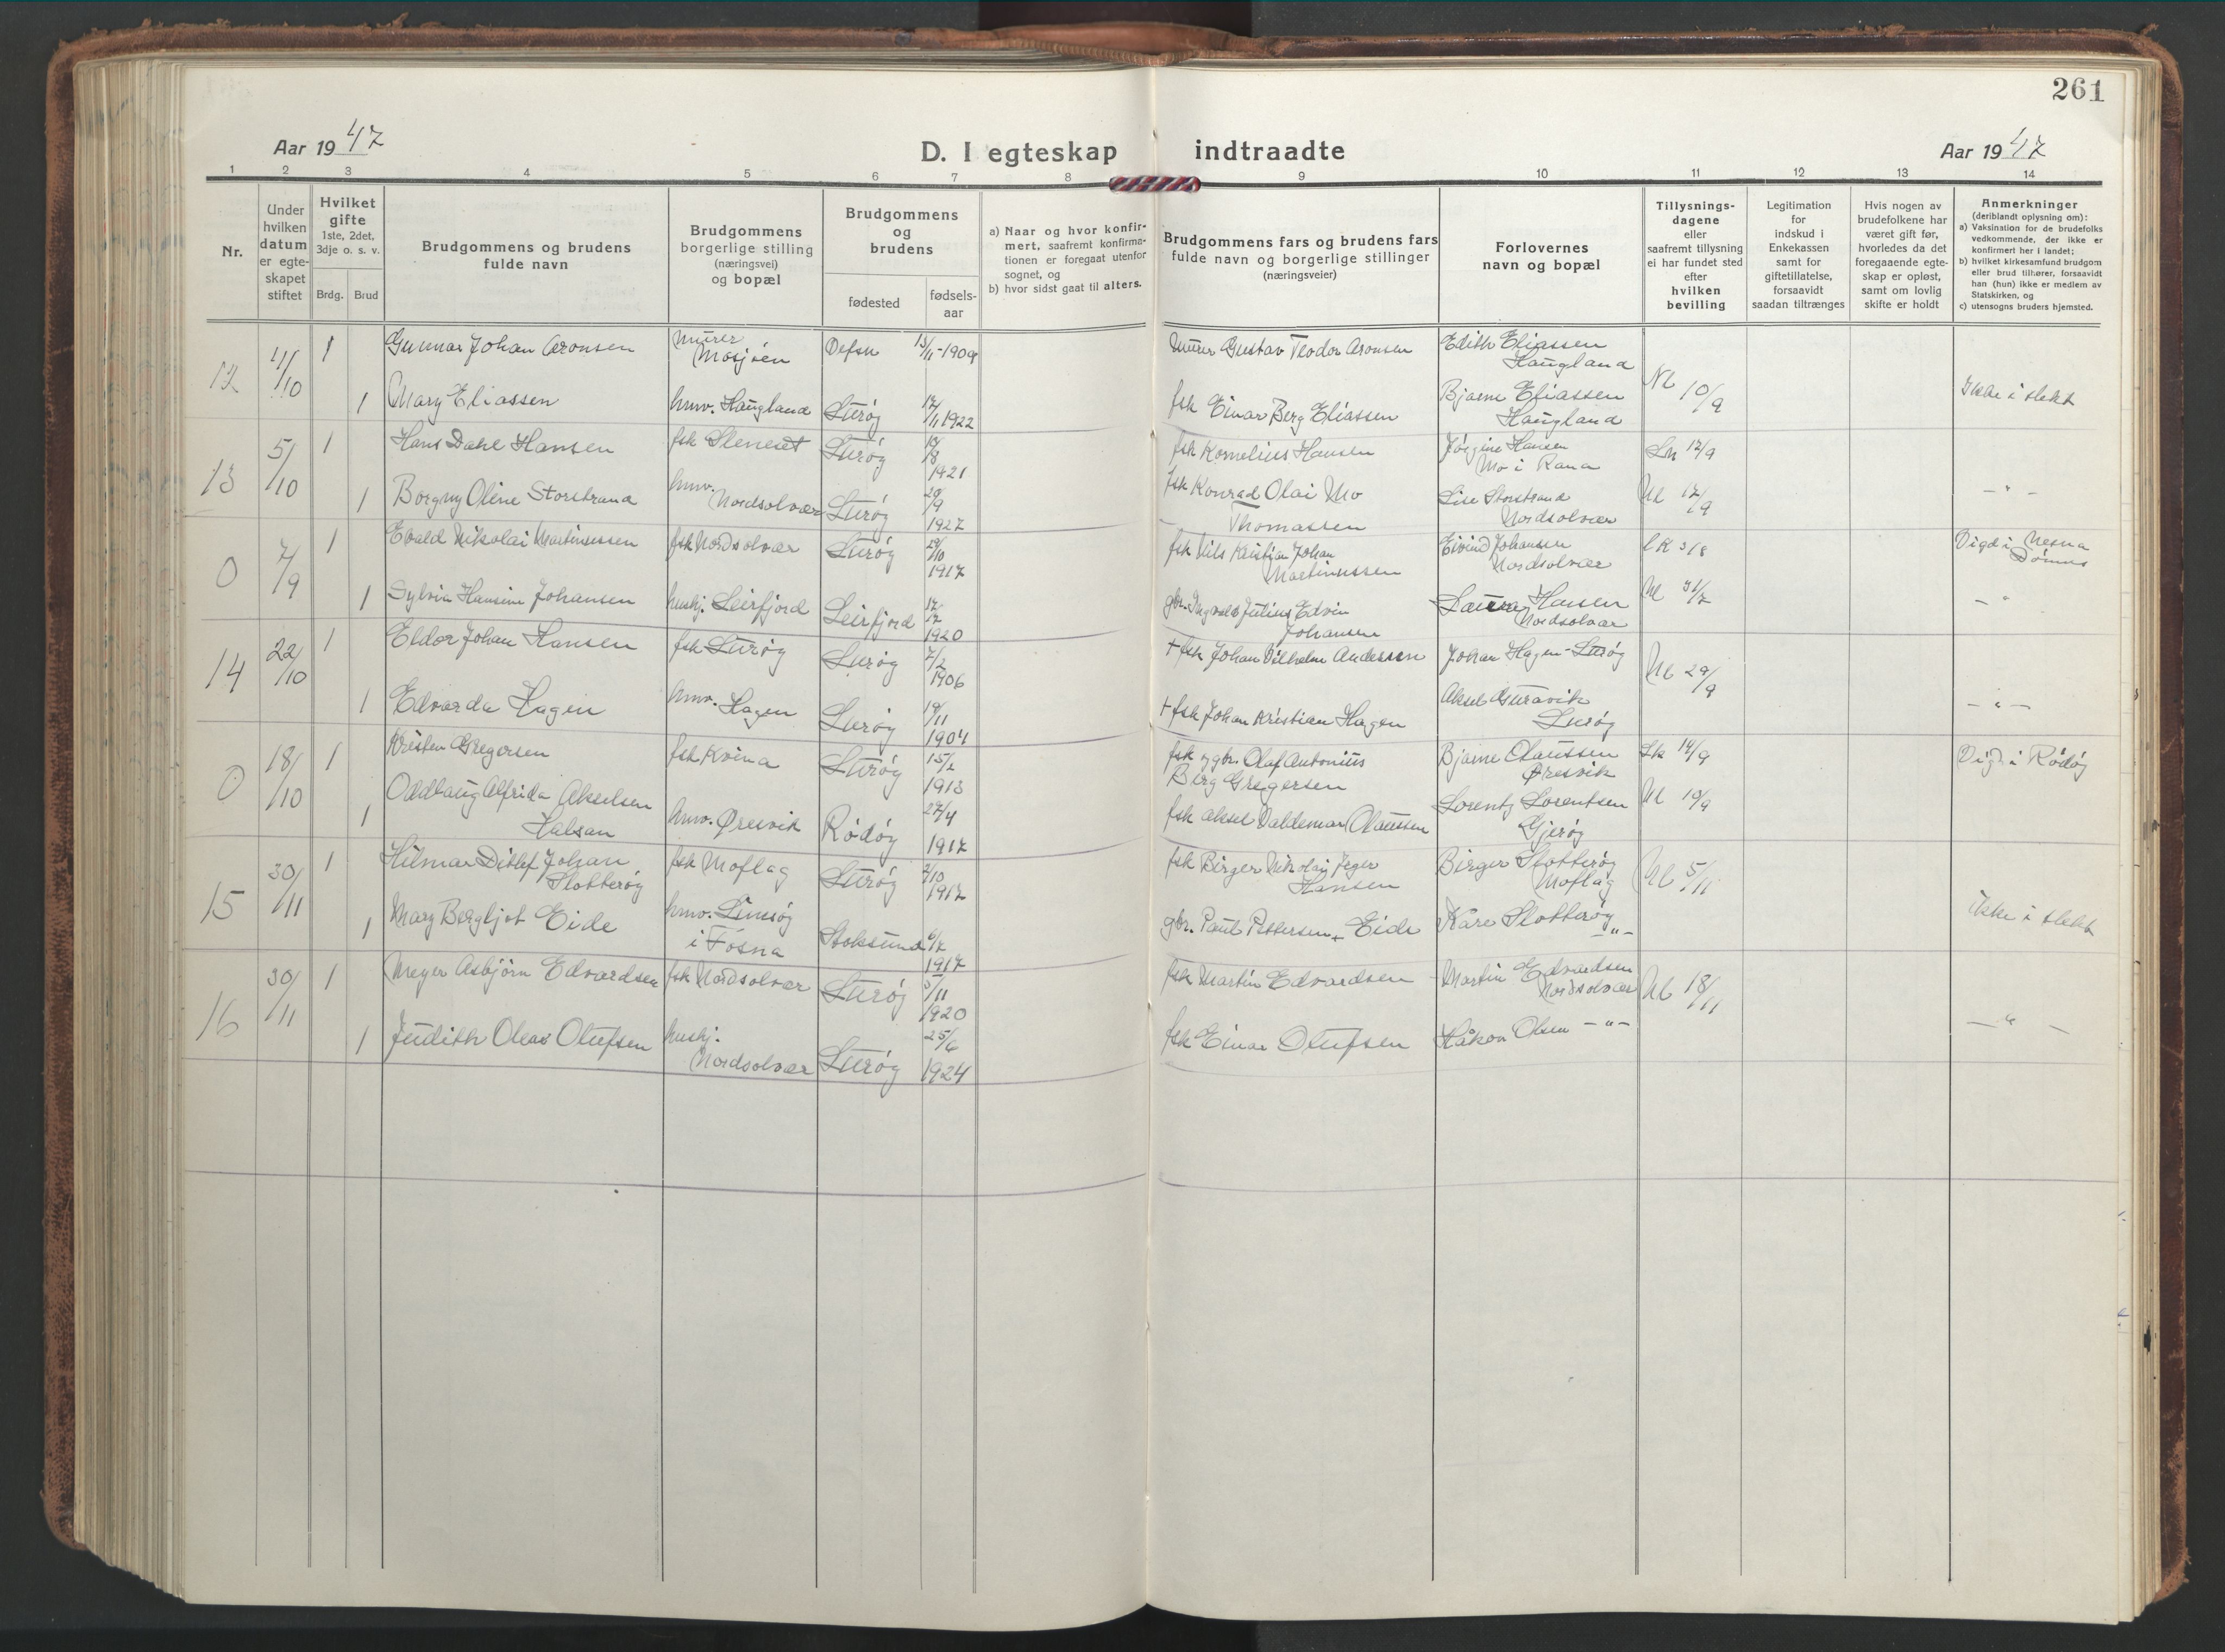 261
Aar 1947
D. I egteskap indtraadte
Aar 1947
1 2 3 4 5 6 7 8 9 10 11 12 13 14
Nr.
Under
hvilken
datum
er egte-
skapet
stiftet
Hvilket
gifte
1ste, 2det,
3dje o. s. v.
Brdg. Brud
Brudgommens og brudens
fulde navn
Brudgommens
borgerlige stilling
(næringsvei)
og bopæl
Brudgommens
og
brudens
fødested
fødsels-
aar
a) Naar og hvor konfir-
mert, saafremt konfirma-
tionen er foregaat utenfor
sognet, og
b) hvor sidst gaat til alters.
Brudgommens fars og brudens fars
fulde navn og borgerlige stillinger
(næringsveier)
Forlovernes
navn og bopæl
Tillysnings-
dagene
eller
saafremt tillysning
ei har fundet sted
efter
hvilken
bevilling
Legitimation
for
indskud i
Enkekassen
samt for
giftetillatelse,
forsaavidt
saadan tiltrænges
Hvis nogen av
brudefolkene har
været gift før,
hvorledes da det
foregaaende egte-
skap er opløst,
samt om lovlig
skifte er holdt
Anmerkninger
(deriblandt oplysning om):
a) Vaksination for de brudefolks
vedkommende, der ikke er
konfirmert her i landet;
b) hvilket kirkesamfund brudgom
eller brud tilhører, forsaavidt
han (hun) ikke er medlem av
Statskirken, og
c) utensogns bruders hjemsted.
12 4/10 1 Gunnar Johan Aronsen
murer
Mosjøen
Defsn 13/11-1909
murer Gustav Teodor Aronsen
Edith Eliassen
Haugland
1 Mary Eliassen
hmv. Haugland
Lurøy 12/11 1922
fsk Einar Berg Eliassen
Bjarne Eliassen
Haugland
Nl 10/9
Ikke i slekt
13 5/10 1 Hans Dahl Hansen
fsk Sleneset
Lurøy
1921
fsk Kornelius Hansen
Jørgine Hansen
Mo i Rana
Ln 12/9
1 Borgny Oline Storstrand
hmv.
Nordsolvær
Lurøy 29/9
1927
fsk Konrad Olai Mo
Thomassen
Lise Storstrand
Nordsolvær
Nl 12/9
- " -
0 7/9 1 Evald Nikolai Martinussen
fsk Nordsolvær
Lurøy 29/10
1917
fsk Nils Kristian Johan
Martinussen
Eivind Johansen
Nordsolvær
LK 3/8
Vigd i Nesna
Dønnes
1 Sylvia Hansine Johansen
hushj. Leirfjord
Leirfjord
1920
gbr. Ingvald Julius Edvin
Johansen
Laura Hansen
Nordsolvær
Nl 31/7
- " -
14 22/10 1 Eldor Johan Hansen
fsk Lurøy
Lurøy 7/2
1906
+ fsk Johan Vilhelm Andersen
Johan Hagen - Lurøy
Nl 29/9
1 Edvarda Hagen
hmv. Hagen
Lurøy 19/11
1904
+ fsk Johan Kristian Hagen
Aksel
Lurøy
- " -
0 18/10 1 Kristen Gregersen
fsk Kvina
Lurøy 15/2
1913
fsk og gbr. Olaf Antonius
Berg Gregersen
Bjarne Olaussen
Øresvik
Lk 14/9
Vigd i Rødøy
1 Oddlaug Alfrida Akselsen
Halsan
hmv. Øresvik
Rødøy 27/4
1917
fsk Aksel Valdemar Olaussen
Lorentz Lorentsen
Gjerøy
Nl 19/9
15 30/11 1 Hilmar Ditlef Johan
Slotterøy
fsk Moflag
Lurøy 2/10
1917
fsk Birger Nikolai Jeger
Hansen
Birger Slotterøy
Moflag
Nl 5/11
1 Mary Bergljot Eide
hmv. Linesøy
i Fosna
Stoksund
1917
gbr. Paul Pettersen Eide
Kåre Slotterøy
- " -
ikke i slekt
16 30/11 1 Meyer Asbjørn Edvardsen
fsk Nordsolvær
Lurøy 3/11
1920
fsk Martin Edvardsen
Martin Edvardsen
Nordsolvær
Nl 18/11
1 Judith Olea Olufsen
hushj.
Nordsolvær
Lurøy 25/6
1924
fsk Einar Olufsen
Håkon Olsen - " -
- " -